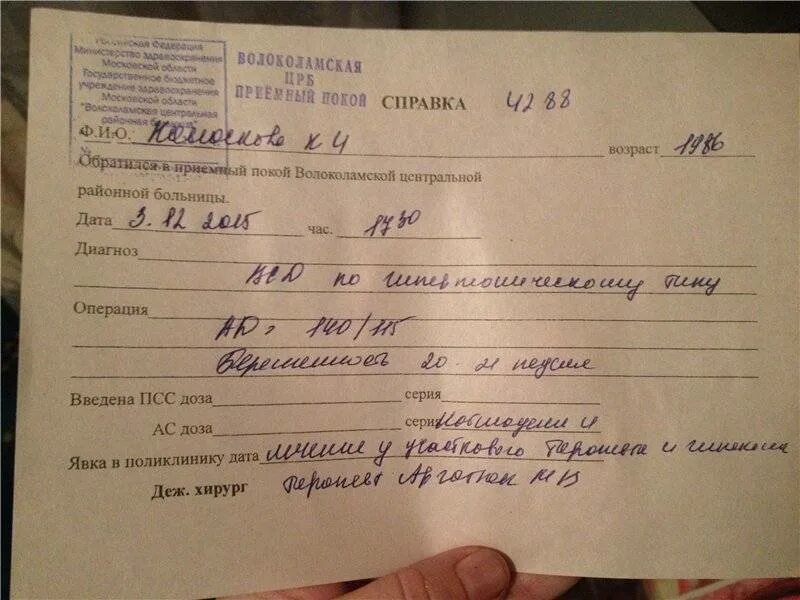 Российская Федерация
Министерство здравоохранения
Московской области
Государственное бюджетное
учреждение здравоохранения
Московской области
"Волоколамская центральная
районная больница"
ВОЛОКОЛАМСКАЯ
ЦРБ
ПРИЁМНЫЙ ПОКОЙ
СПРАВКА 4288
Ф.И.О. К И возраст 1986
Обратился в приемный покой Волоколамской центральной
районной больницы.
Дата 3.12 2015 час. 17 30
Диагноз
ВСД по гипертоническому типу
Операция
АД = 140/115
Беременность 20-21 неделя
Введена ПСС доза серия
АС доза серия Наблюдение и
Явка в поликлинику дата лечение у участкового терапевта и гинеколога
Деж. хирург Терапевт